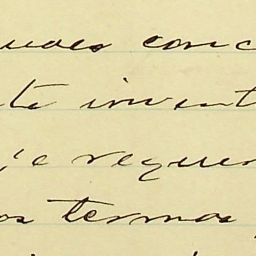 uoes conc
te invent
e requer
os termos